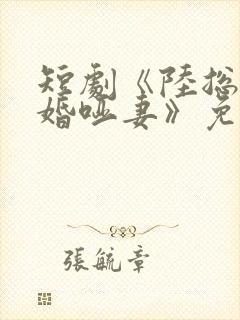 短劇《陸总
婚哑妻》免
張毓章